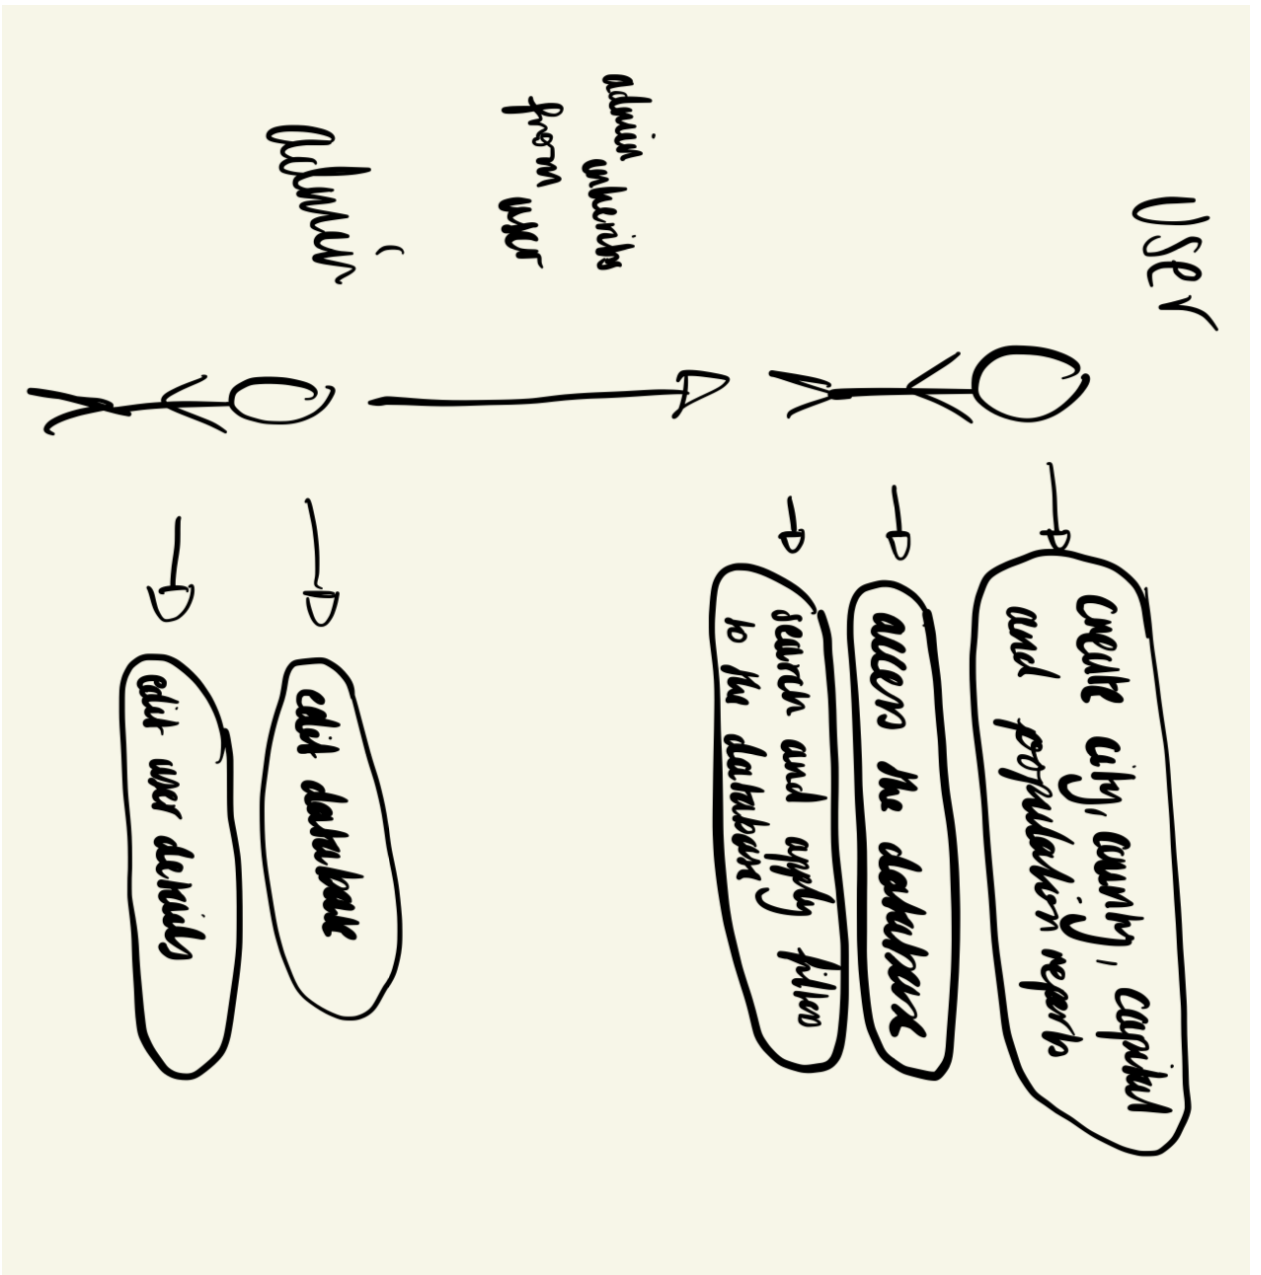 User
Create city, country, capital
and population reports
access the database
search and apply filters
to the database
admin inherits
from user
admin
edit database
edit user details